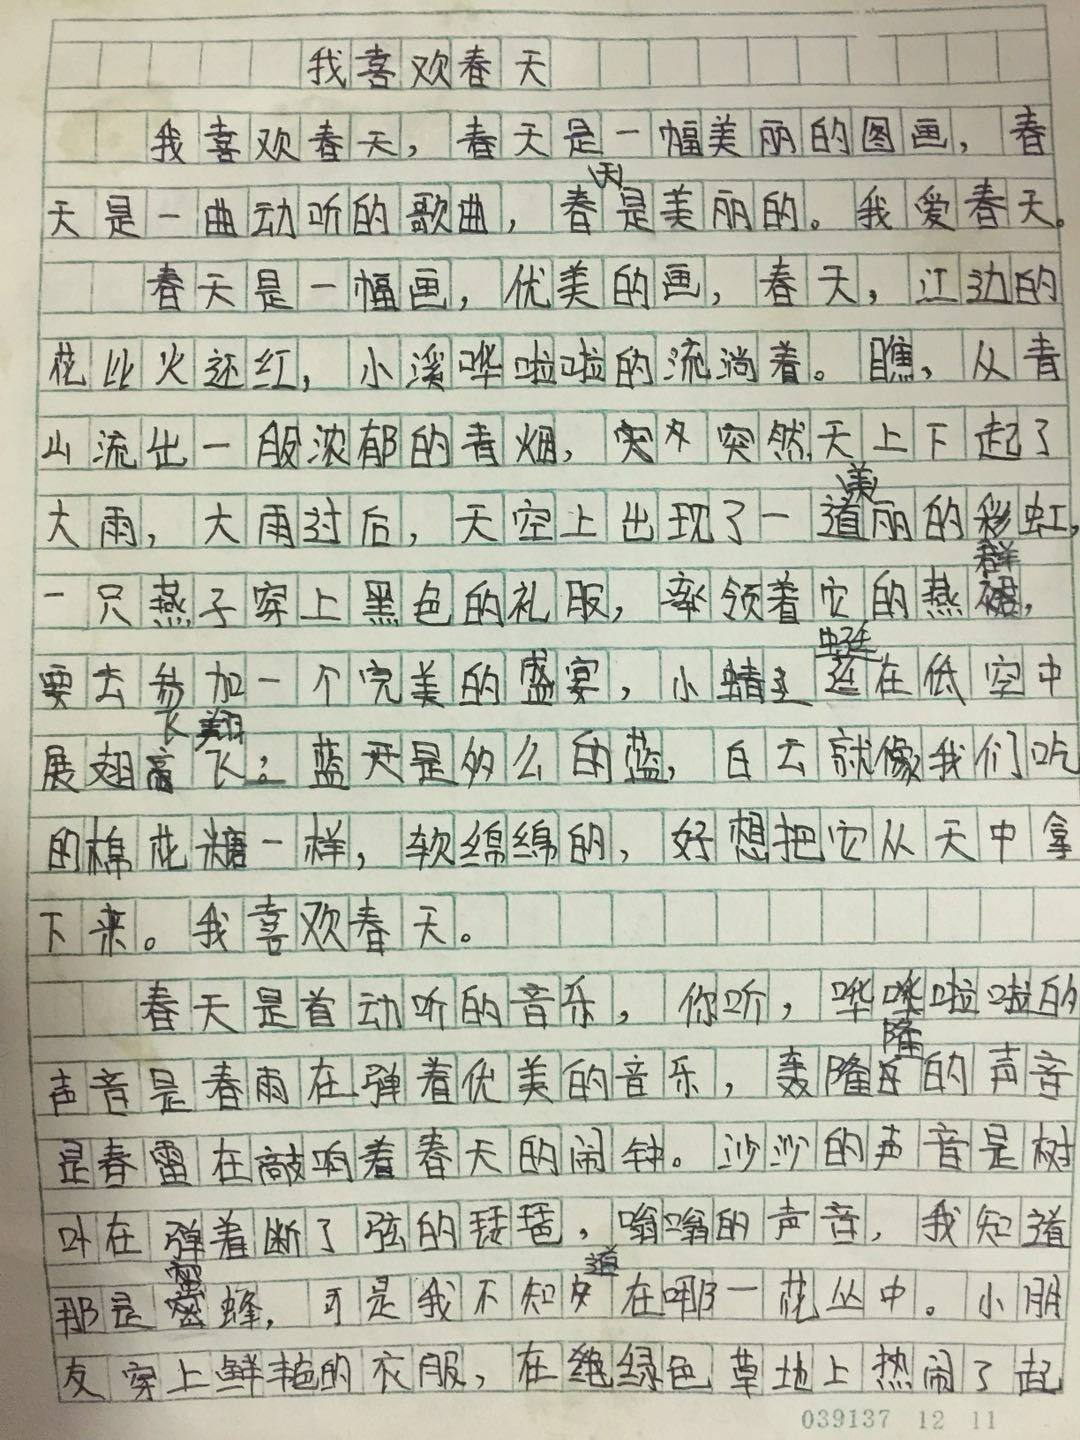 我喜欢春天
我喜欢春天，春天是一幅美丽的图画，春
天是一曲动听的歌曲，春天是美丽的。我爱春天。
春天是一幅画，优美的画，春天，江边的
花比火还红，小溪哗啦啦的流淌着。瞧，从青
山流出一股浓郁的青烟，突然天上下起了
大雨，大雨过后，天空上出现了一道美丽的彩虹，
一只燕子穿上黑色的礼服，率领着它的燕群，
要去参加一个完美的盛宴，小蜻蜓在低空中
展翅飞翔。蓝天是多么的蓝，白云就像我们吃
的棉花糖一样，软绵绵的，好想把它从天中拿
下来。我喜欢春天。
春天是首动听的音乐，你听，哗哗啦啦的
声音是春雨在弹着优美的音乐，轰隆隆的声音
是春雷在敲响着春天的闹钟。沙沙的声音是树
叶在弹着断了弦的琵琶，嗡嗡的声音，我知道
那是蜜蜂，可是我不知道在哪一花丛中。小朋
友穿上鲜艳的衣服，在绿色草地上热闹了起
039137 12 11